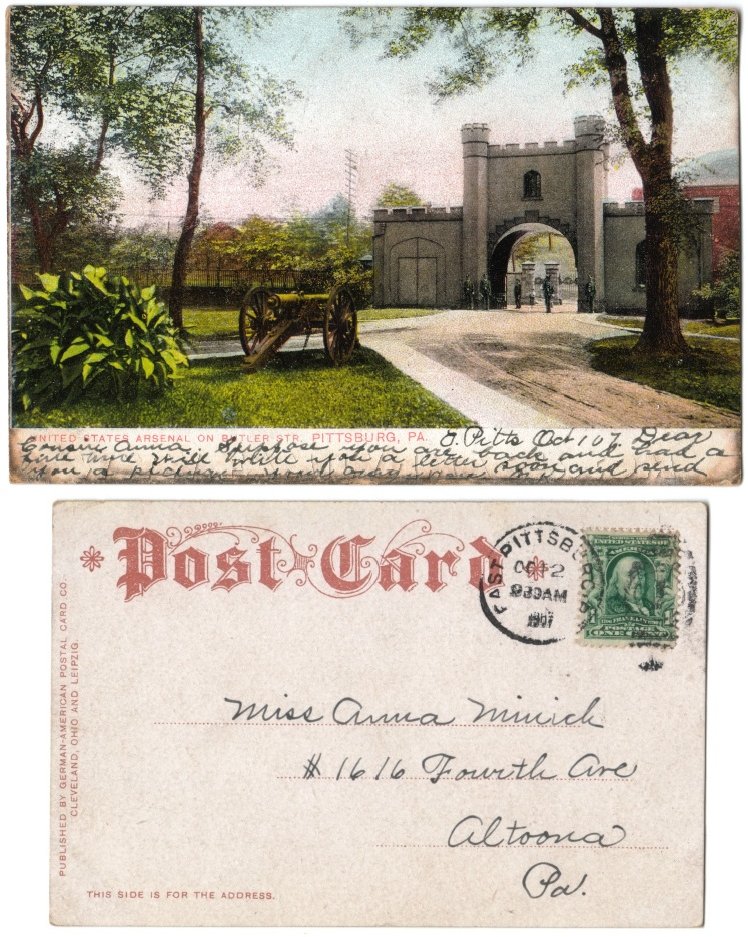 UNITED STATES ARSENAL ON BUTLER STR. PITTSBURG, PA.
E. Pitts Oct 1 07 Dear
Cousin Anna. Suppose you are back and had a
time. will write you a letter soon and send
you a picture
Post Card
EAST PITTSBURG
OCT 2
930AM
1907
UNITED STATES OF
AMERICA
POSTAGE
ONE CENT
PUBLISHED BY GERMAN-AMERICAN POSTAL CARD CO.
CLEVELAND, OHIO AND LEIPZIG.
Miss Anna Minick
#1616 Fourth Ave
Altoona
Pa.
THIS SIDE IS FOR THE ADDRESS.